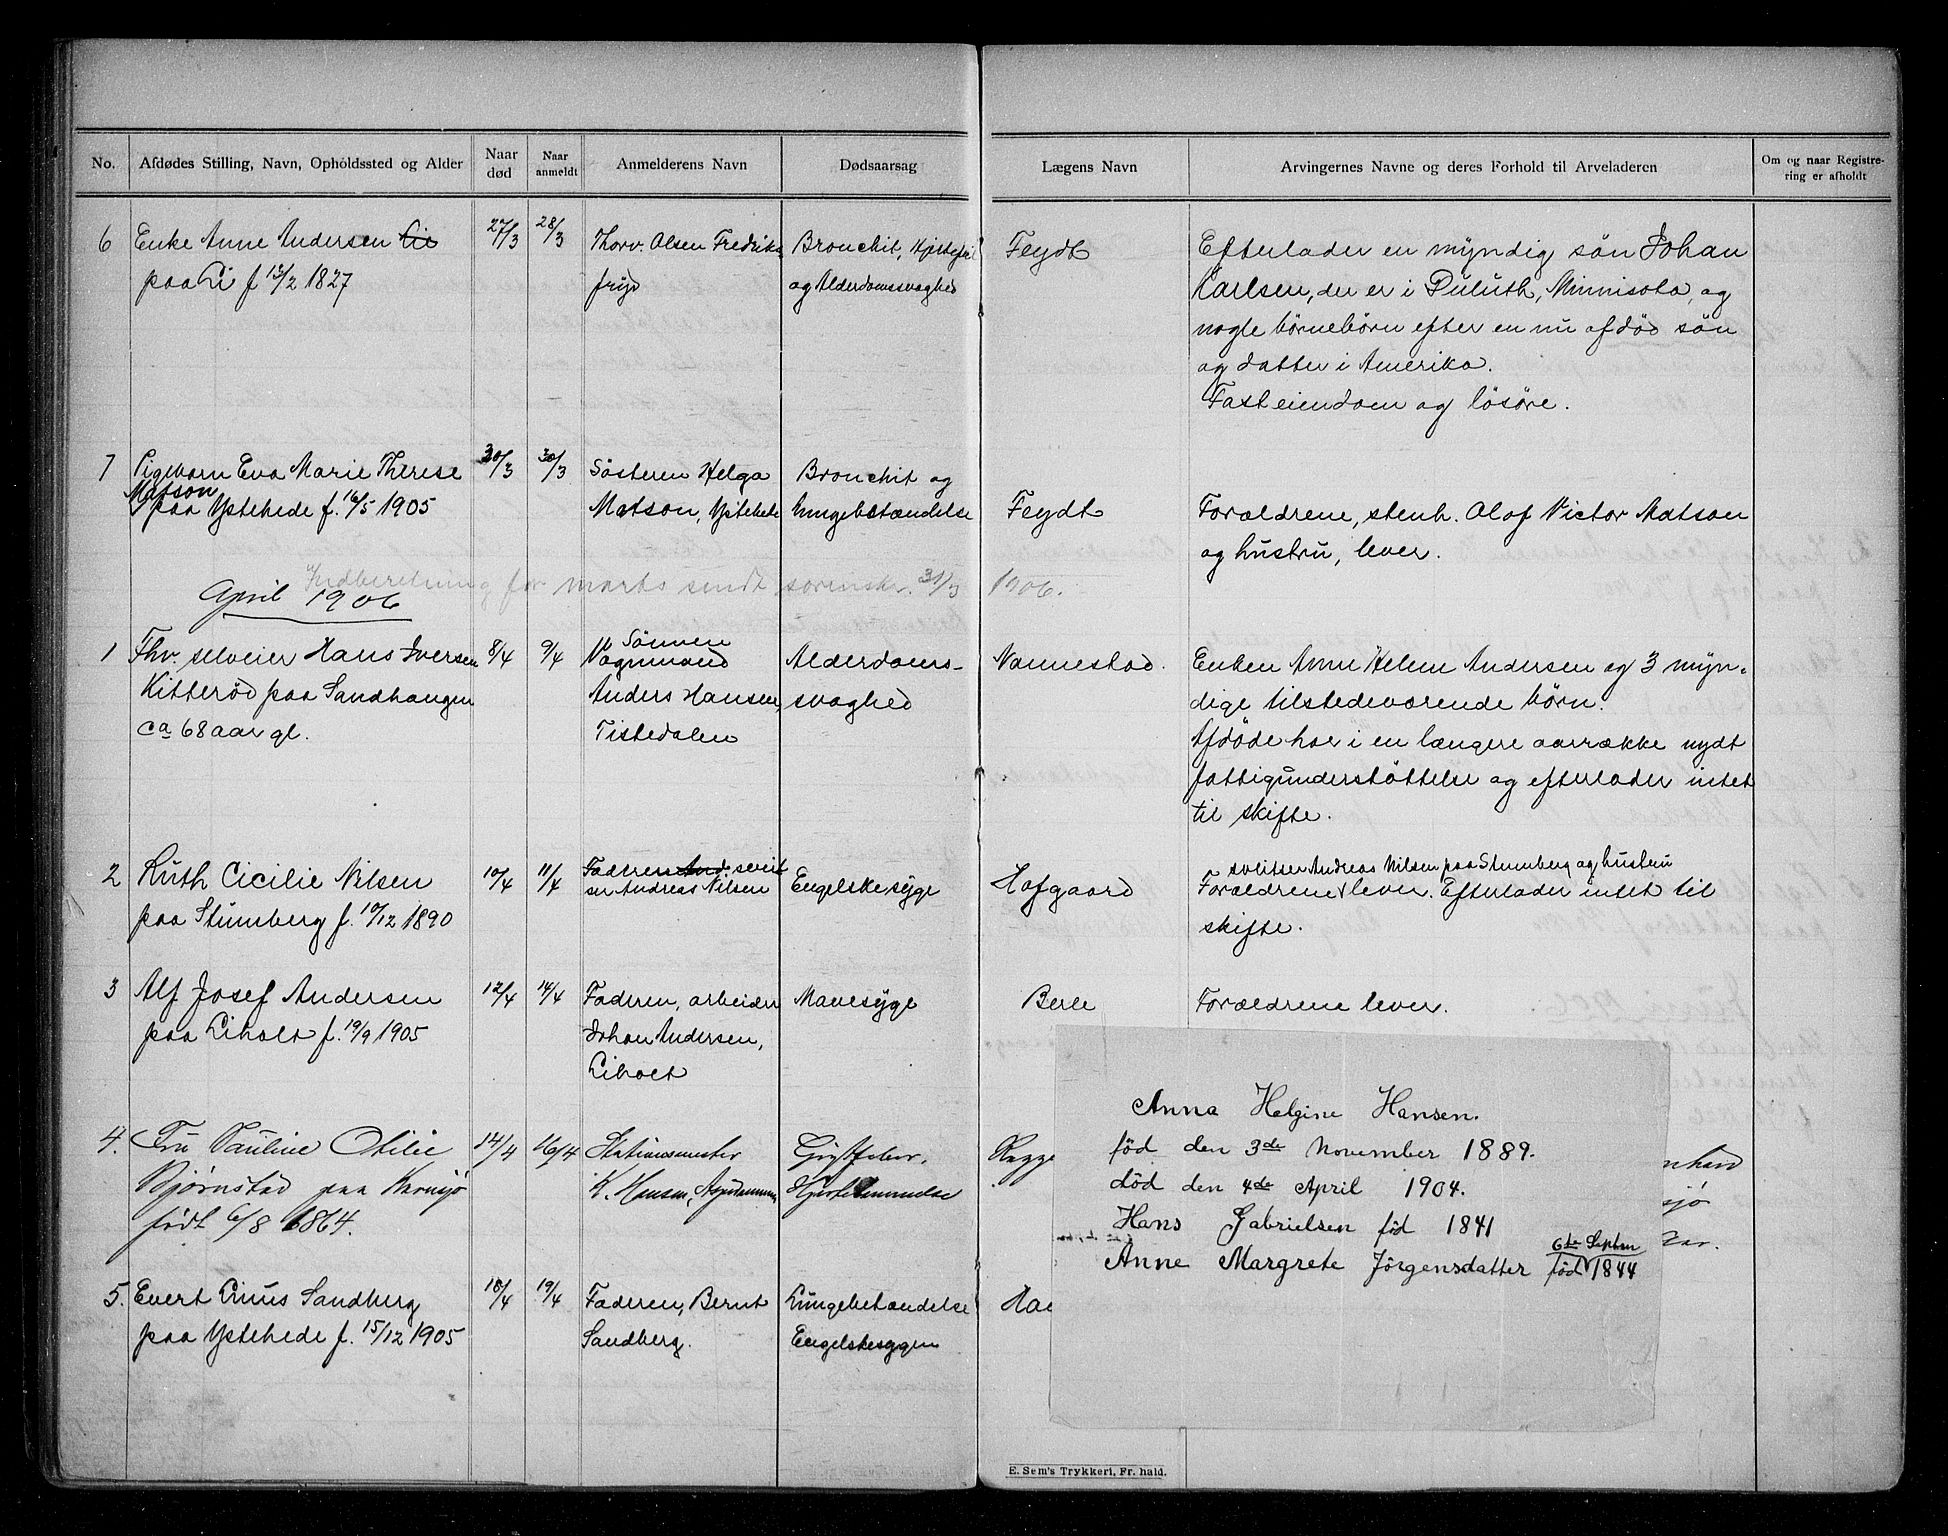 No.
Afdødes Stilling, Navn, Opholdssted og Alder
Naar død
Naar anmeldt
Anmelderens Navn
Dødsaarsag
Lægens Navn
Arvingernes Navne og deres Forhold til Arveladeren
Om og naar Registrering er afholdt
6 Enke Anne Andersen Lie
paa Li f 13/2 1827
27/3
28/3
Thorv. Olsen Fredriks
fryd
Bronchit, Hjertefeil
og Alderdomssvaghed
Feydt
Efterlader en myndig søn Johan
Karlsen, der er i Duluth, Minnisota, og
nogle børnebørn efter en nu afdød søn
og datter i Amerika.
Fast eiendom og løsøre.
7 Pigebarn Eva Marie Therese
Matson
paa Ystehede f. 16/5 1905
30/3
30/3
Søsteren Helga
Matson, Ystehede
Bronchit og
lungebetændelse
Feydt
Forældrene, stenh. Olof Victor Matson
og hustru, lever.
Indberetning for marts sendt sorenskr. 31/3 1906.
April 1906
1 Fhv. selveier Hans Iversen
Kitterød paa Sandhaugen
ca 68 aar gl.
8/4
9/4
Sønnen
Vognmand
Anders Hansen,
Tistedalen
Alderdoms-
svaghed
Nannestad.
Enken Anne Helene Andersen og 3 myn-
dige tilstedeværende børn.
Afdøde har i en længere aarrække nydt
fattigunderstøttelse og efterlader intet
til skifte.
2 Ruth Cicilie Nilsen
paa Stumberg f. 10/12 1890
10/4
11/4
Faderen And. sveit
ser Andreas Nilsen
Engelskesyge
Hofgaard
sveitser Andreas Nilsen paa Stumberg og hustru
Forældrene lever. Efterlader intet til
skifte.
3 Alf Josef Andersen
paa Liholt f. 19/9 1905
12/4
14/4
Faderen, arbeider
Johan Andersen,
Liholt
Mavesyge
Berle
Forældrene lever.
4. Fru Pauline Otilie
Bjørnstad paa Kornsjø
født 6/8 1864.
14/4
16/4
Stationsmester
K. Hansen, Aspedammen
Gigtfeber,
Hjertelammelse
Rogge
nhard
sjø
5. Evert Linus Sandberg
paa Ystehede f. 15/12 1905
18/4
19/4
Faderen, Bernt
Sandberg.
Lungebetændelse
Engelskesygen
Anna Helgine Hansen.
född den 3de November 1889.
död den 4de April 1904.
Hans Gabrielsen föd 1841
6te Septbr
Anne Margrete Jörgensdatter föd 1844
E. Sem's Trykkeri, Fr. hald.